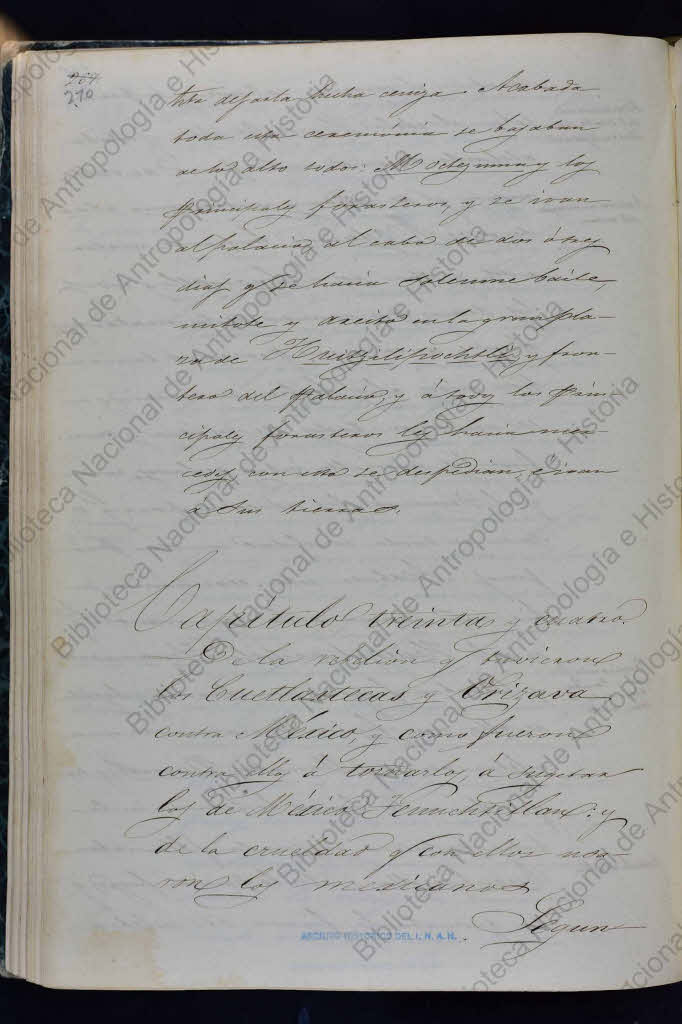 269
270
dicha ceniza. Acabada
toda esta ceremonia se bajaban
de lo alto todos: Moctezuma y los
principales forasteros, y se ivan
al palacio, al cabo de dos ó tres
dias y se hacia solemne baile,
mitote y areito en la gran pla-
za de Huitzilipochtli, y fron-
tero del Palacio, y á los prin-
cipales forasteros les hacia mer-
cedes, con esto se despedian, é ivan
á sus tierras.
Capítulo treinta y cuatro.
De la rebelion q tuvieron
los Cuetlaxtecas y Orizava
contra México, y como fueron
contra ellos á tornarlos á sugetar
los de México Tenuchtitlan: y
de la crueldad q con ellos usa-
ron los mexicanos
Segun
ARCHIVO HISTORICO DEL I. N. A. H.
Biblioteca Nacional de Antropología e Historia